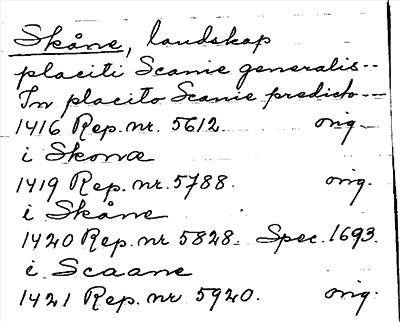 Skåne, landskap
placiti Scanie generalis--
In placito Scanie predicto--
1416 Rep. nr. 5612. orig.
i Skonæ
1419 Rep. nr. 5788. orig.
i Skåne
1420 Rep. nr 5828. Spec. 1693.
i Scaane
1421 Rep. nr 5920. orig.